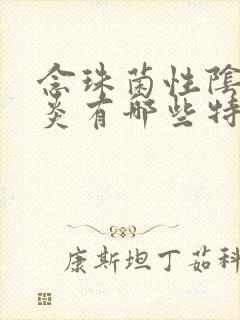 念珠菌性陰
炎有哪些特
康斯坦丁茹科